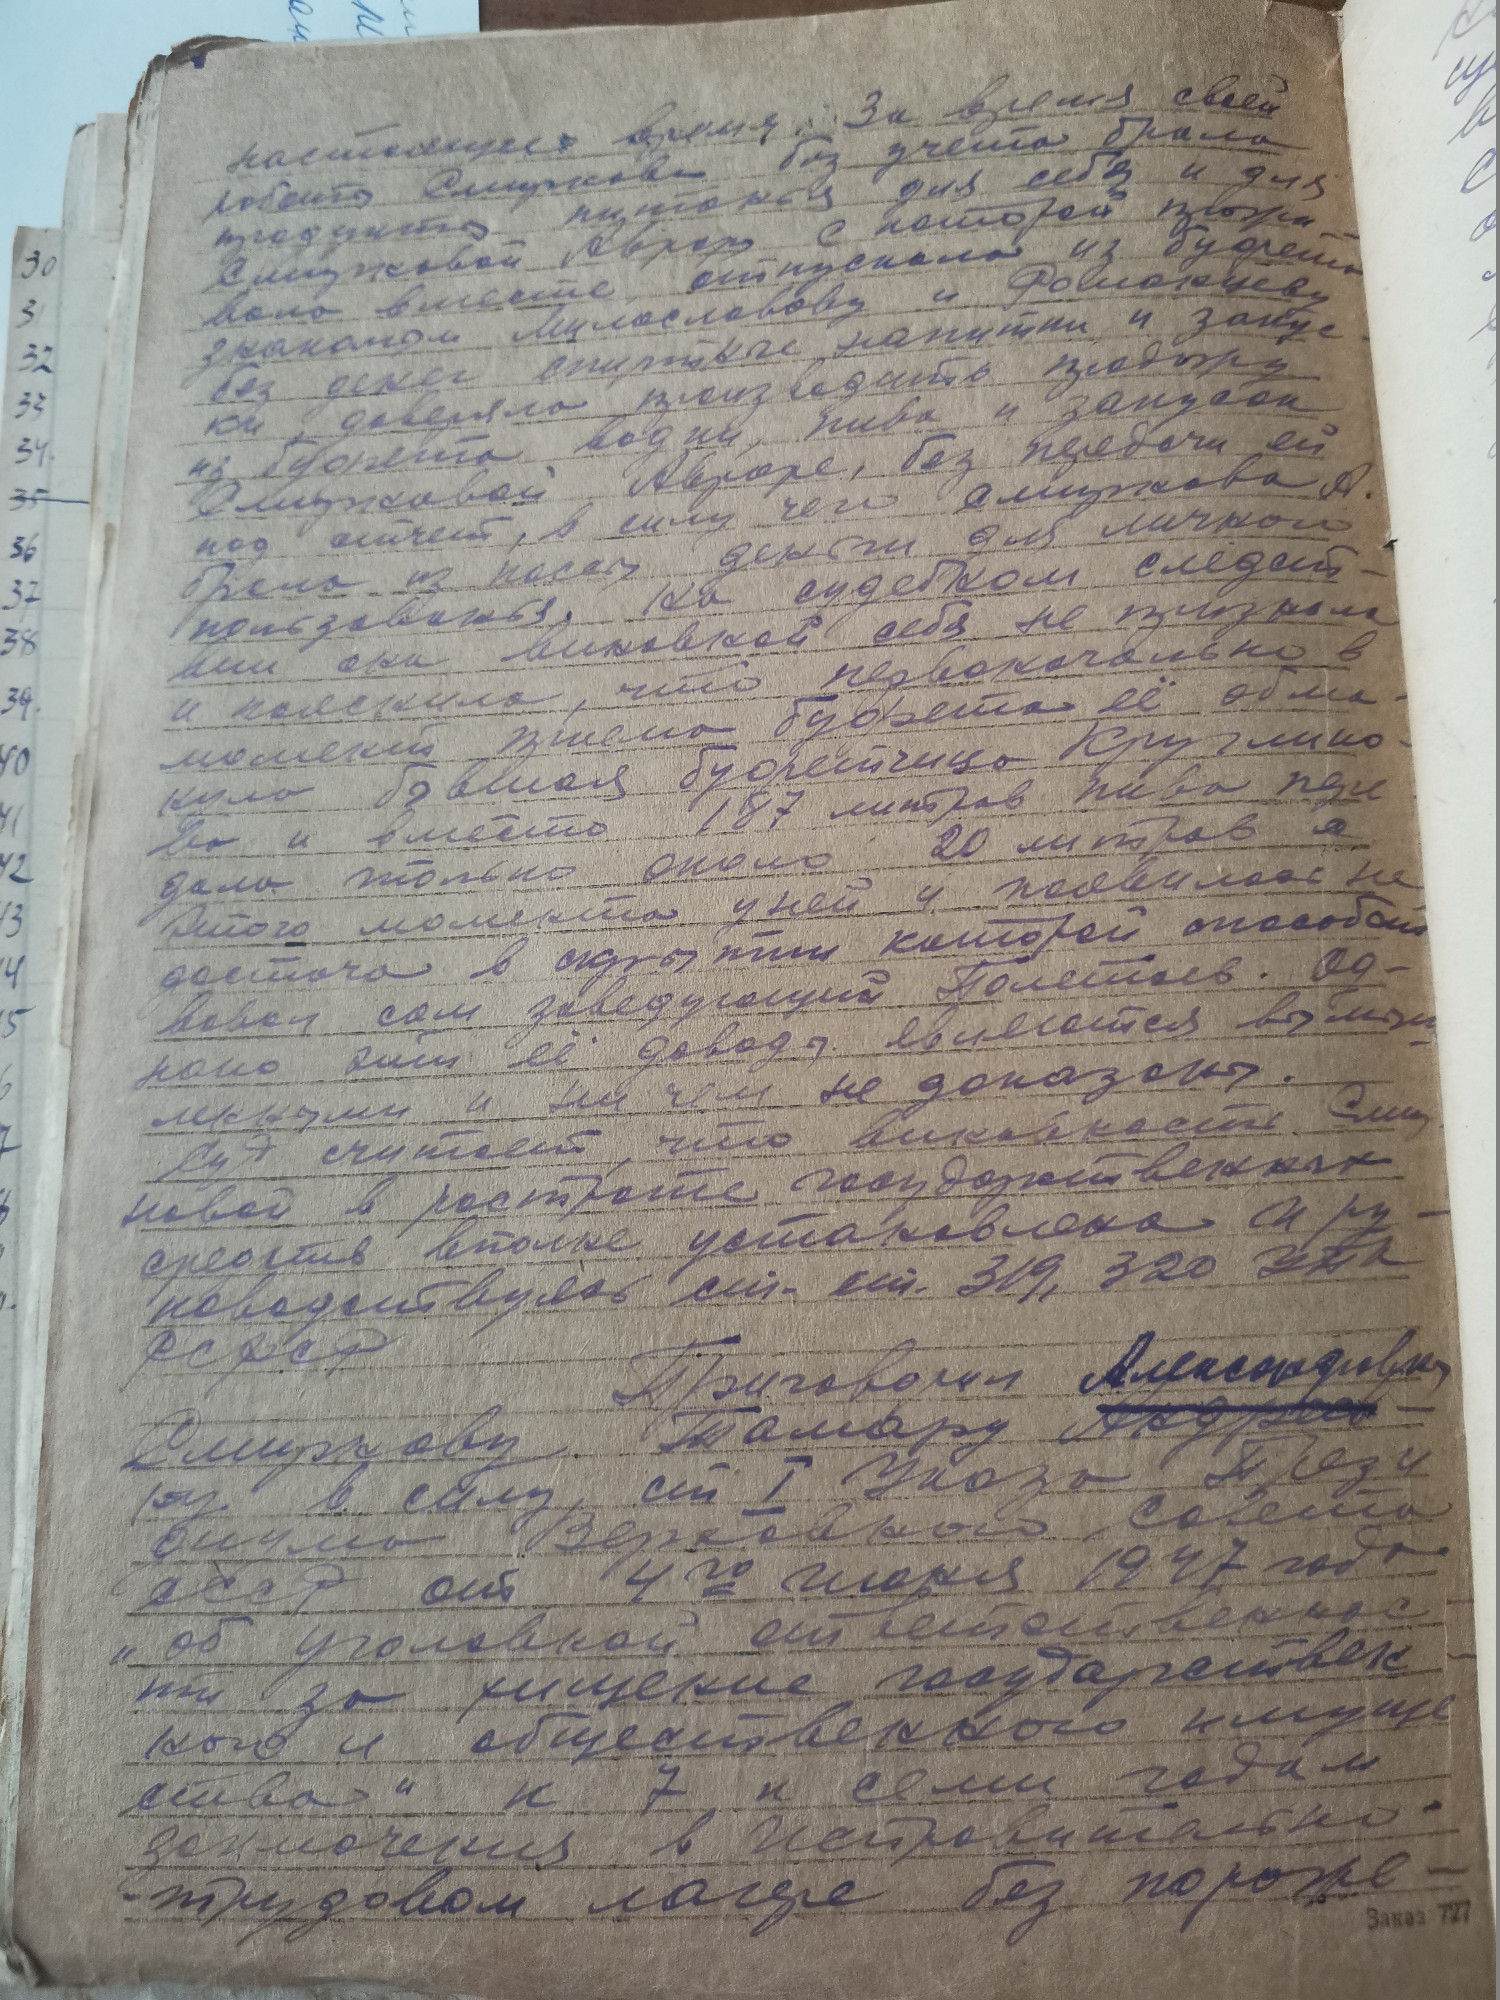 30
31
32
33
34.
35
36
37
38
39.
40
41
42
43
44
45
настоящее время. За время своей
работы Смирнова без учета брала
продукты питания для себя и для
Смирновой Авроры с которой прожи
вала вместе, отпускала из буфета
знакомом Милославову и Фомакцеву
без денег спиртные напитки и закус-
ки, доверяла производить продажу
из буфета водки, пива и закусок
Смирновой Авроре, без передачи ей
под отчет, в силу чего Смирнова А.
брала из кассы деньги для личного
пользования. На судебном следст-
вии она виновной себя не признала
и пояснила, что первоначально в
момент приема буфета её обма-
нула бывшая буфетчица Круглико-
ва и вместо 187 литров пива пере
дала только около 20 литров с
этого момента у ней и появилась не
достача в скрытии которой способст
вовал сам заведующий Полетаев. Од-
нако эти её доводы являются вымыш
ленными и ни чем не доказаны.
Суд считает, что виновность Смир
новой в растрате государственных
средств вполне установлена и ру-
ководствуясь ст. ст. 319, 320 УПК
РСФСР
Приговорил Александровну
Смирнову Тамару Андреев-
ну в силу ст I Указа Прези
диума Верховного Совета
СССР от 4го июня 1947 года
„об уголовной ответственнос-
ти за хищение государствен-
ного и общественного имуще
ства" к 7 и семи годам
заключения в Исправительно-
-трудовом лагере без пораже-
Заказ 727